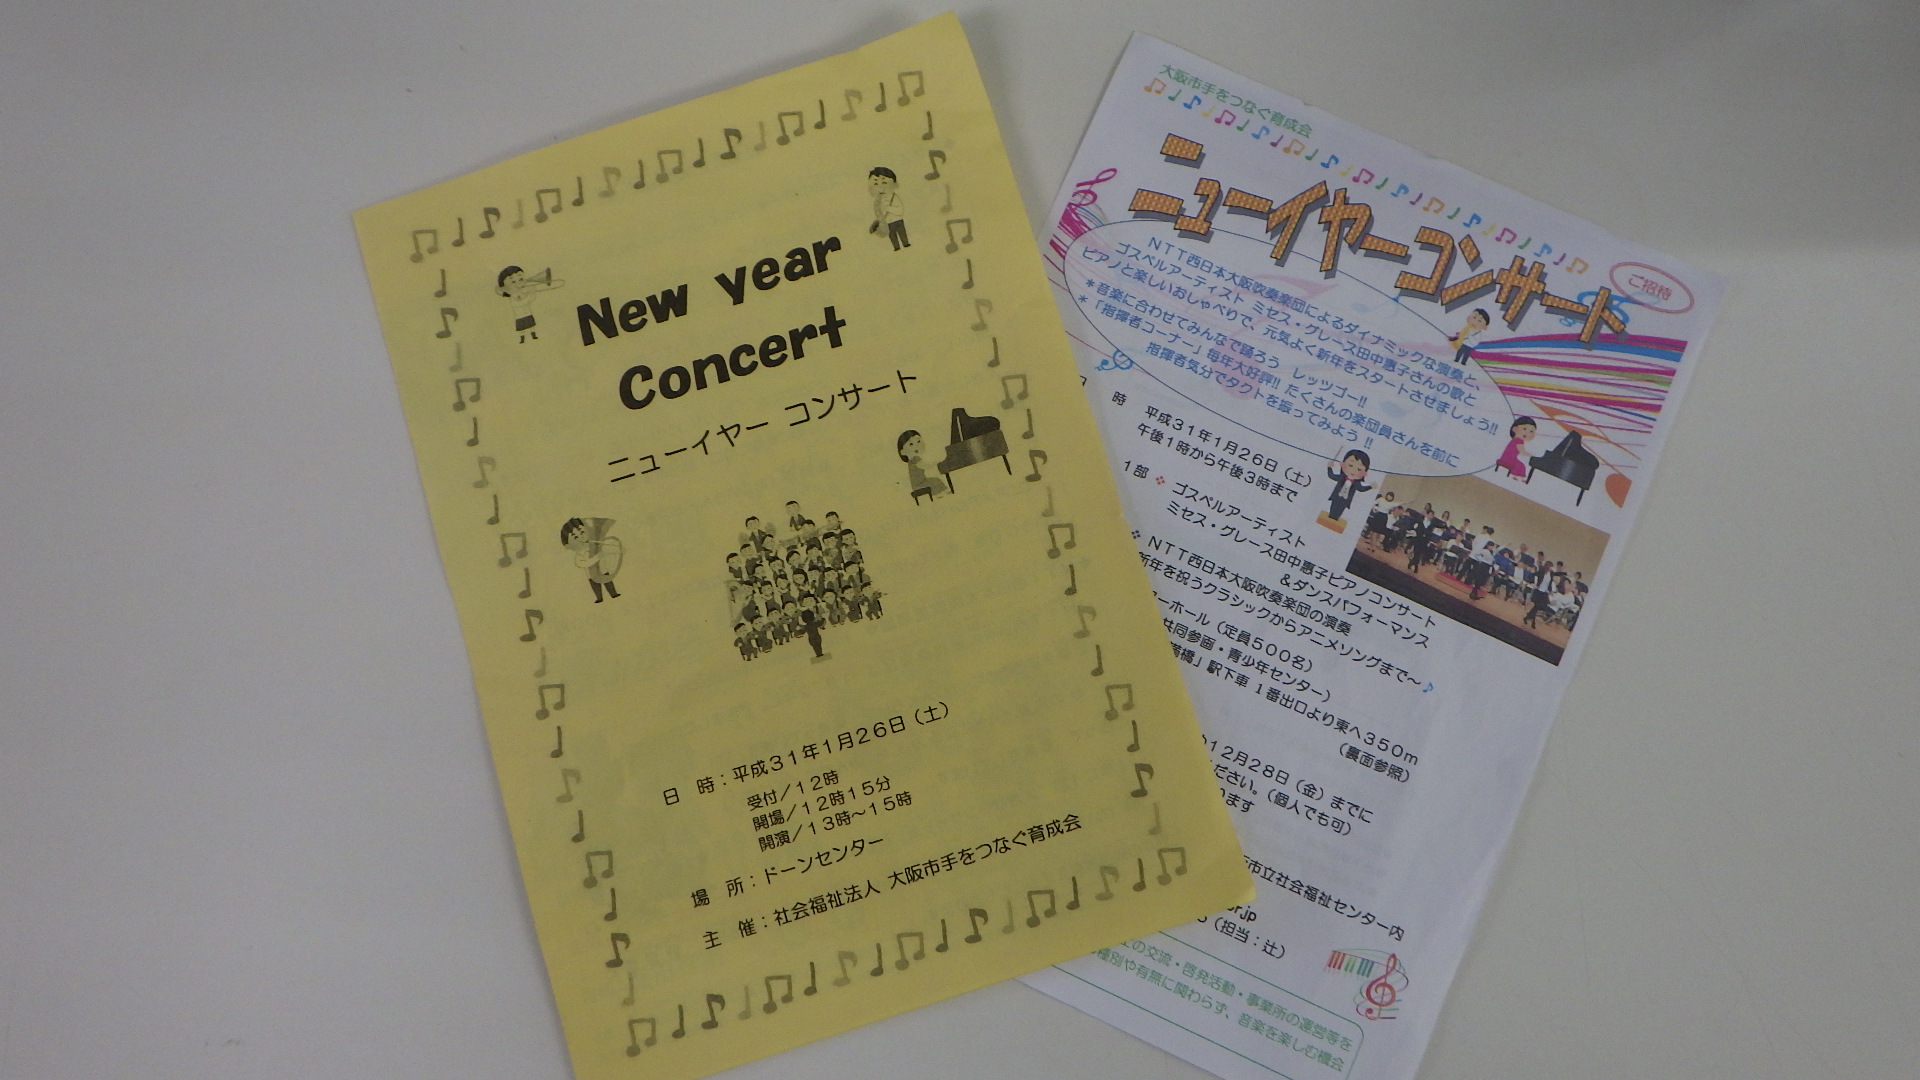 New year
Concert
ニューイヤー コンサート
日 時：平成31年1月26日（土）
受付／12時
開場／12時15分
開演／13時～15時
場 所：ドーンセンター
主 催：社会福祉法人 大阪市手をつなぐ育成会
大阪市手をつなぐ育成会
ニューイヤーコンサート
ご招待
NTT西日本大阪吹奏楽団によるダイナミックな演奏と、
ゴスペルアーティスト ミセス・グレース田中恵子さんの歌と
ピアノと楽しいおしゃべりで、元気よく新年をスタートさせましょう!!
＊音楽に合わせてみんなで踊ろう レッツゴー!!
＊「指揮者コーナー」毎年大好評!! たくさんの楽団員さんを前に
指揮者気分でタクトを振ってみよう !!
時 平成31年1月26日（土）
午後1時から午後3時まで
1部 ゴスペルアーティスト
ミセス・グレース田中恵子ピアノコンサート
＆ダンスパフォーマンス
NTT西日本大阪吹奏楽団の演奏
新年を祝うクラシックからアニメソングまで～♪
ーホール（定員500名）
共同参画・青少年センター）
満橋」駅下車 1番出口より東へ350m
（裏面参照）
12月28日（金）までに
ださい。（個人でも可）
ります
市立社会福祉センター内
or.jp
（担当：辻）
の交流・啓発活動・事業所の運営等を
種別や有無に関わらず、音楽を楽しむ機会